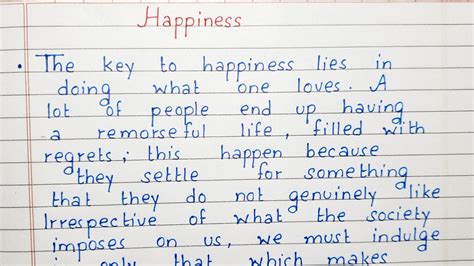 Happiness
• The key to happiness lies in
doing what one loves. A
lot of people end up having
a remorseful life, filled with
regrets; this happen because
they settle for something
that they do not genuinely like
Irrespective of what the society
imposes on us, we must indulge
in only that which makes